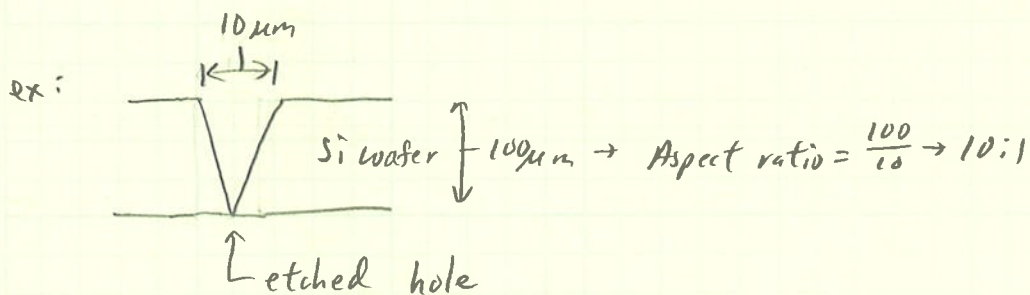 10 μm
ex:
Si wafer 100μm → Aspect ratio = 100/10 → 10:1
etched hole